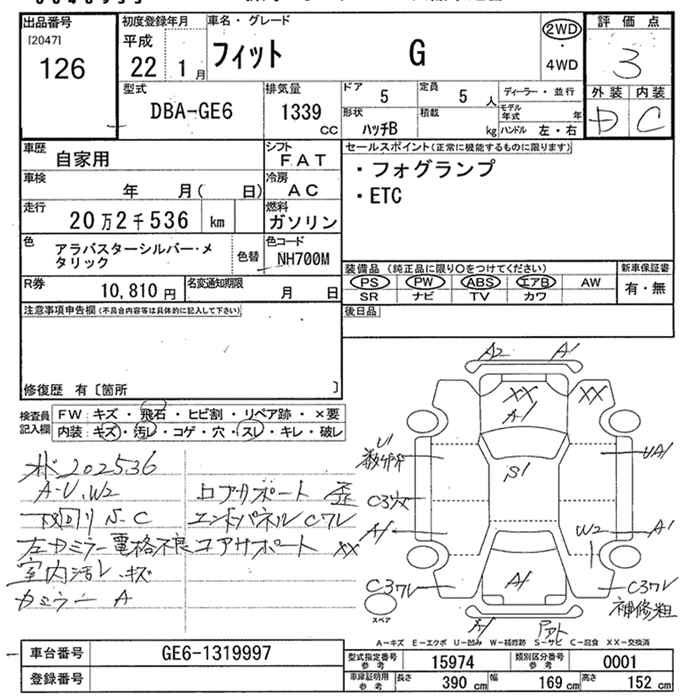 出品番号
[2047]
126
初度登録年月
平成
22 1月
車名・グレード
フィット G
2WD
・
4WD
評価点
3
外装 内装
D C
型式
DBA-GE6
排気量
1339
CC
ドア
5
定員
5 人
形状
ハッチB
積載
kg
ディーラー・並行
モデル年式 年
ハンドル 左・右
車歴
自家用
シフト
FAT
車検
年 月( 日)
冷房
AC
走行
20万2千536 km
燃料
ガソリン
色
アラバスターシルバー・メタリック
色替
色コード
NH700M
R券
10,810 円
名変通知期限
月 日
セールスポイント(正常に機能するものに限ります)
・フォグランプ
・ETC
装備品 (純正品に限り○をつけてください)
PS PW ABS エアB AW
SR ナビ TV カワ
新車保証書
有・無
後日品
注意事項申告欄(不具合内容等は具体的に記入して下さい)
修復歴 有〔箇所 〕
検査員記入欄
FW:キズ・飛石・ヒビ割・リペア跡・×要
内装:キズ・汚レ・コゲ・穴・スレ・キレ・破レ
202536
A-U、W2
下回り S-C
左ドミラー電格不良
室内汚レ、キズ
ドミラー A
コアサポート XX
エンドパネル Cワレ
A2 A1
XX XX
A1
S1
U1
UA1
C3
W2 A1
Cワレ
A1
Cワレ
補修粗
スペア
A-キズ E-エクボ U-凹み W-補修跡 S-サビ C-腐食 XX-交換済
車台番号
GE6-1319997
登録番号
型式指定番号
参考
15974
類別区分番号
参考
0001
車庫証明用
参考
長さ 390 cm
幅 169 cm
高さ 152 cm